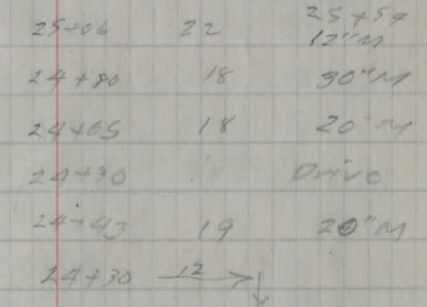 25+59
25+06 22 12"M
24+80 18 30"M
24+65 18 20"M
24+30 Drive
24+43 19 20"M
24+30 12